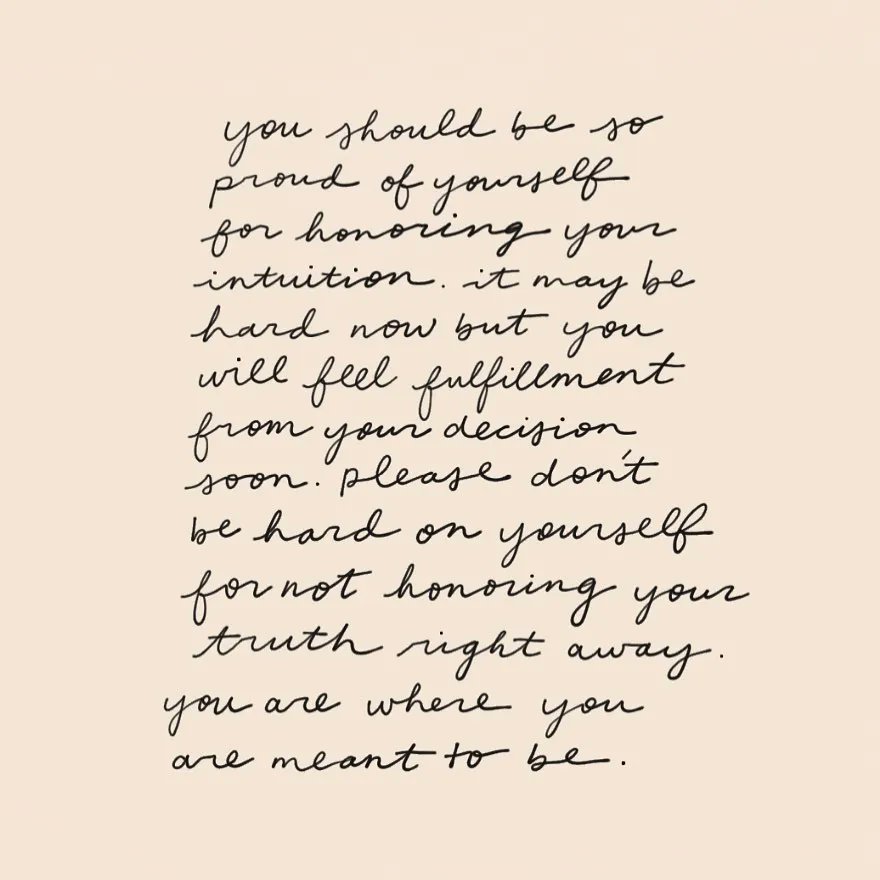 you should be so
proud of yourself
for honoring your
intuition. it may be
hard now but you
will feel fulfillment
from your decision
soon. please don't
be hard on yourself
for not honoring your
truth right away.
you are where you
are meant to be.